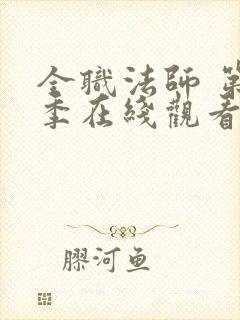 全職法師 第
季在綫觀看
膠河鱼